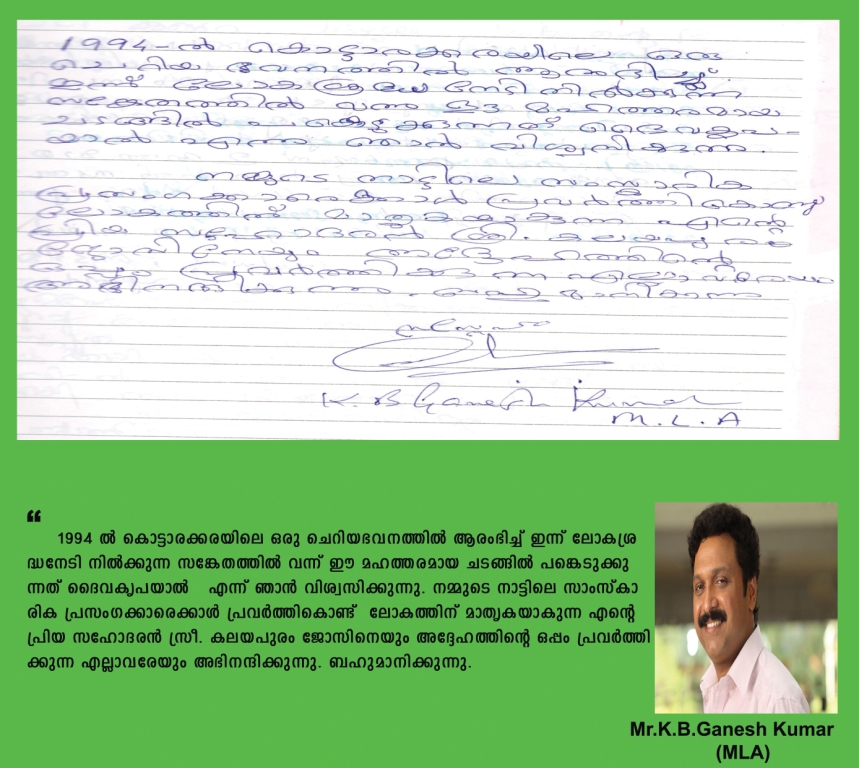 1994-ൽ കൊട്ടാരക്കരയിലെ ഒരു
ചെറിയ ഭവനത്തിൽ ആരംഭിച്ച്
ഇന്ന് ലോകശ്രദ്ധ നേടി നിൽക്കുന്ന
സങ്കേതത്തിൽ വന്ന് ഈ മഹത്തരമായ
ചടങ്ങിൽ പങ്കെടുക്കുന്നത് ദൈവകൃപ-
യാൽ എന്ന് ഞാൻ വിശ്വസിക്കുന്നു.
നമ്മുടെ നാട്ടിലെ സാംസ്കാരിക
പ്രസംഗക്കാരെക്കാൾ പ്രവർത്തികൊണ്ട്
ലോകത്തിന് മാതൃകയാകുന്ന എന്റെ
പ്രിയ സഹോദരൻ ശ്രീ. കലയപുരം
ജോസിനെയും അദ്ദേഹത്തിന്റെ
ഒപ്പം പ്രവർത്തിക്കുന്ന എല്ലാവരേയും
അഭിനന്ദിക്കുന്നു. ബഹുമാനിക്കുന്നു
സസ്നേഹം
K. B Ganesh Kumar
M. L. A
“
1994 ൽ കൊട്ടാരക്കരയിലെ ഒരു ചെറിയഭവനത്തിൽ ആരംഭിച്ച് ഇന്ന് ലോകശ്ര
ദ്ധനേടി നിൽക്കുന്ന സങ്കേതത്തിൽ വന്ന് ഈ മഹത്തരമായ ചടങ്ങിൽ പങ്കെടുക്കു
ന്നത് ദൈവകൃപയാൽ എന്ന് ഞാൻ വിശ്വസിക്കുന്നു. നമ്മുടെ നാട്ടിലെ സാംസ്കാ
രിക പ്രസംഗക്കാരെക്കാൾ പ്രവർത്തികൊണ്ട് ലോകത്തിന് മാതൃകയാകുന്ന എന്റെ
പ്രിയ സഹോദരൻ ശ്രീ. കലയപുരം ജോസിനെയും അദ്ദേഹത്തിന്റെ ഒപ്പം പ്രവർത്തി
ക്കുന്ന എല്ലാവരേയും അഭിനന്ദിക്കുന്നു. ബഹുമാനിക്കുന്നു.
Mr.K.B.Ganesh Kumar
(MLA)